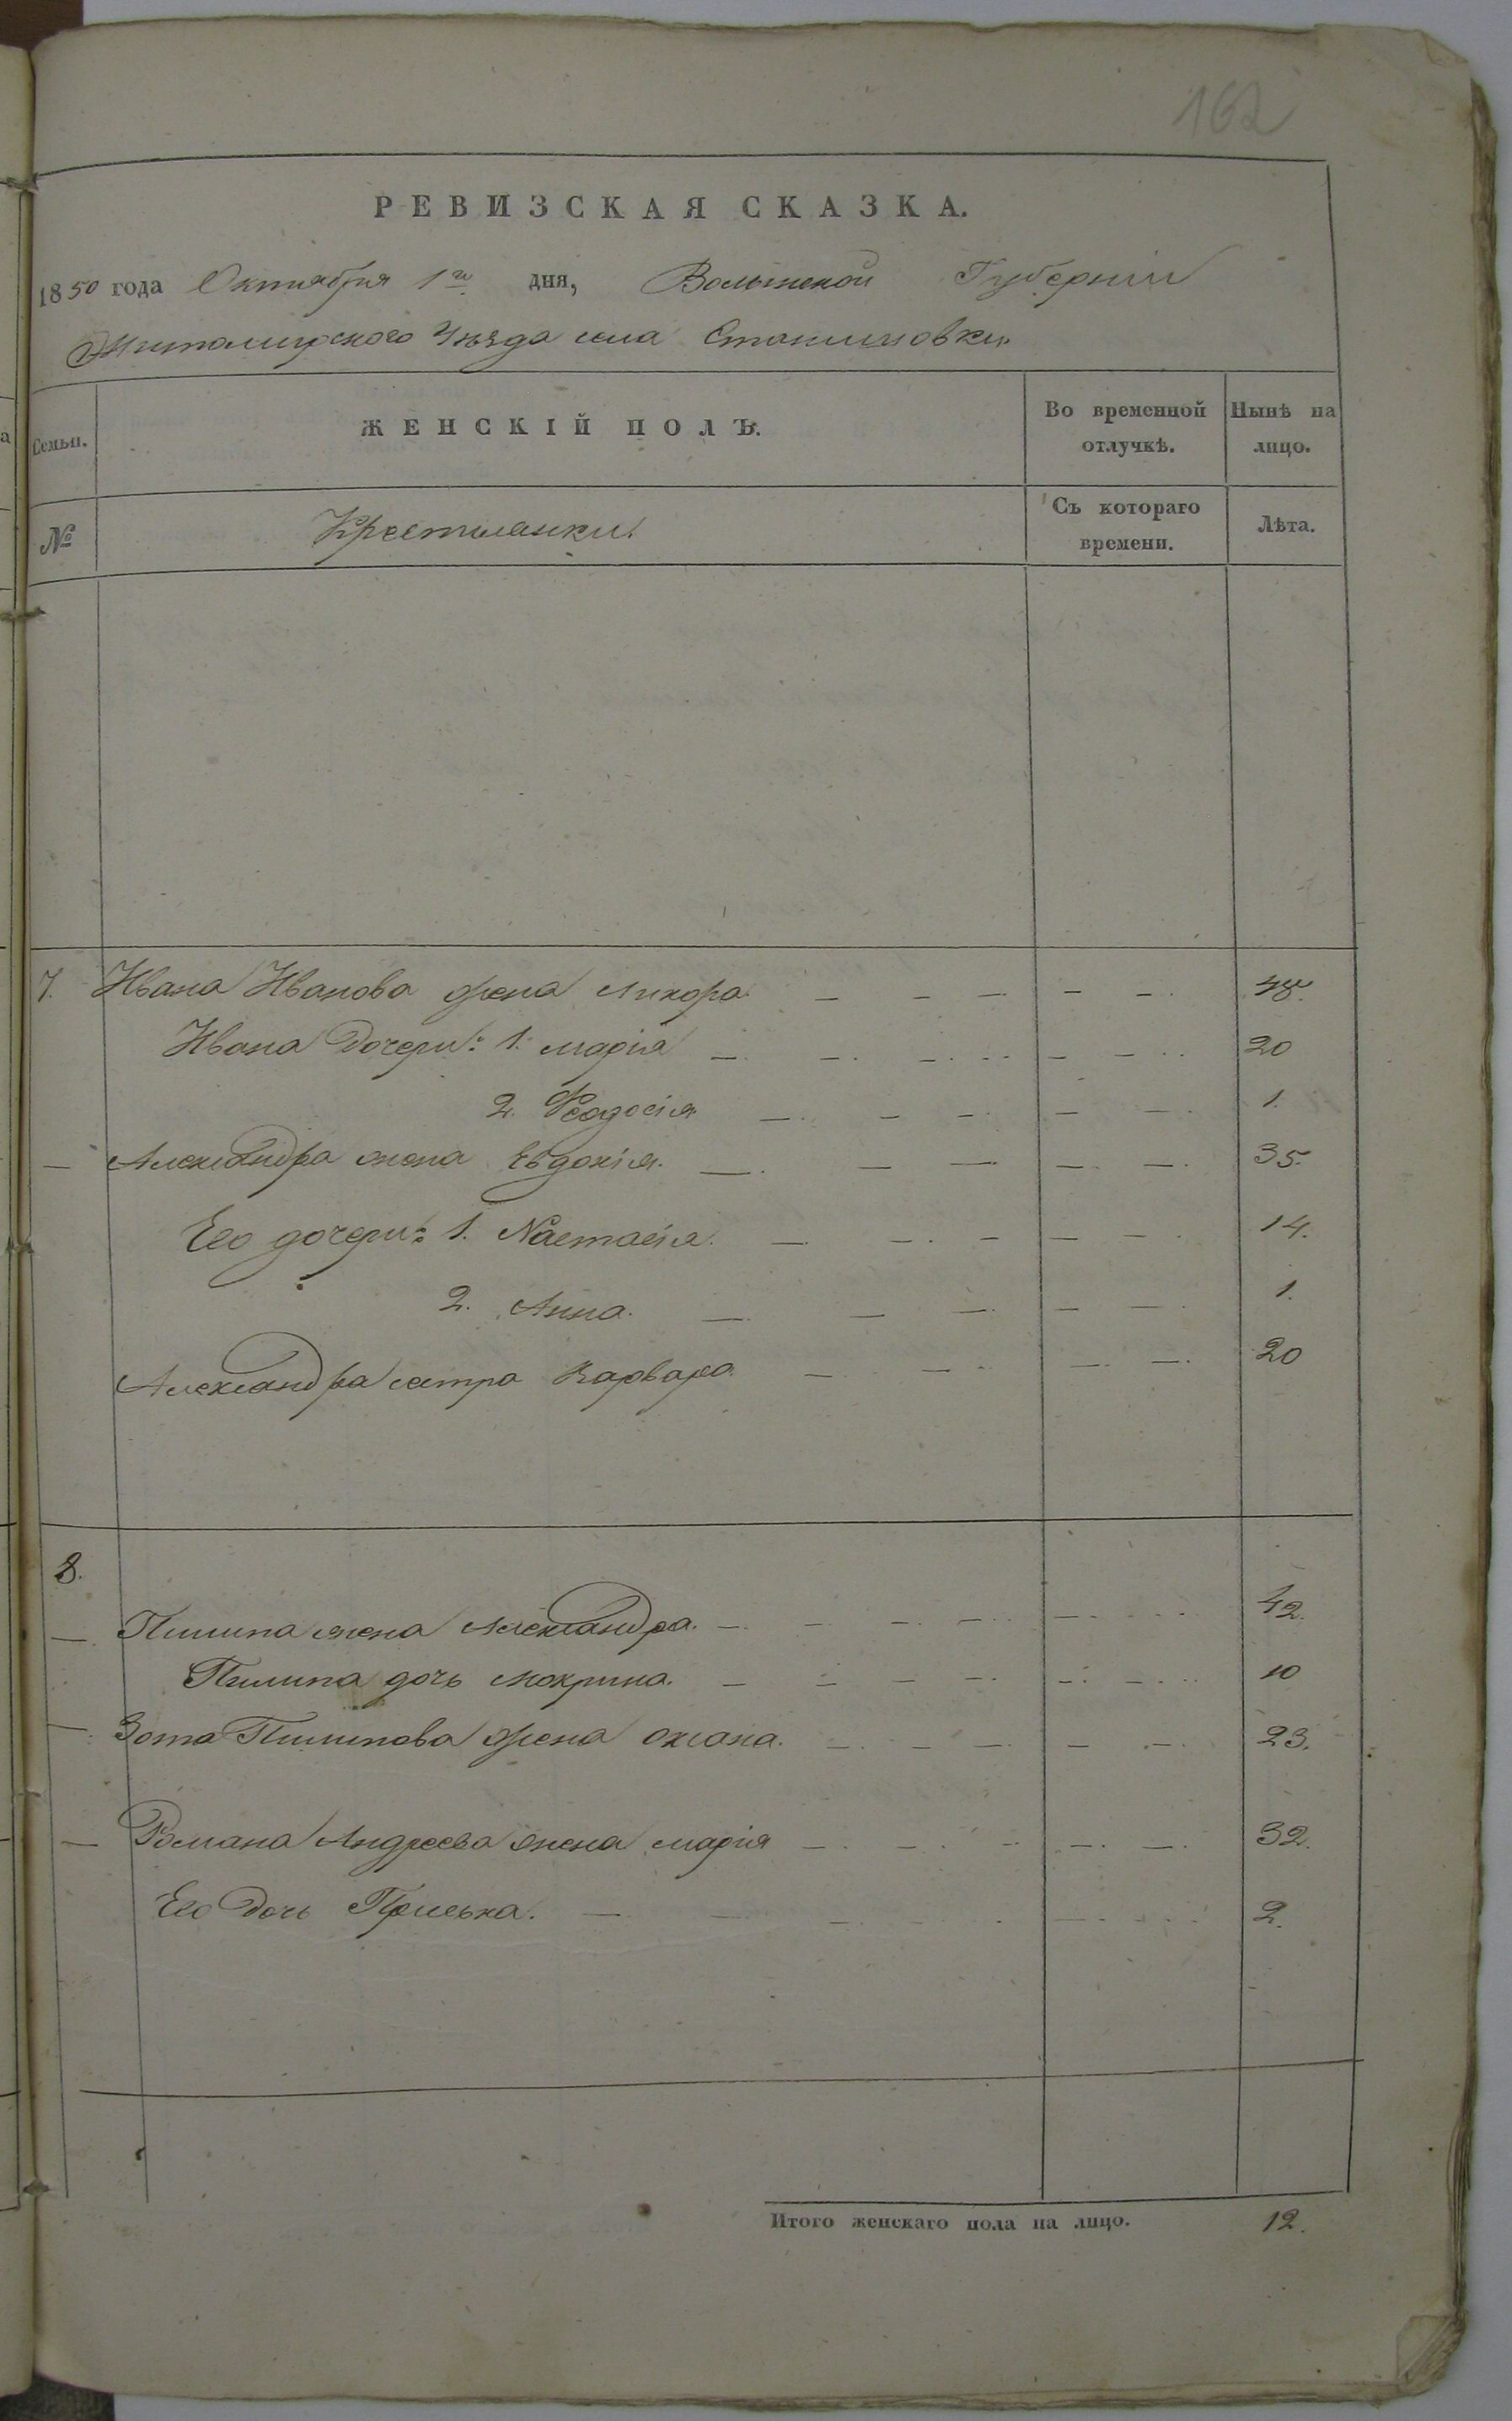 162
РЕВИЗСКАЯ СКАЗКА.
1850 года Октября 1го дня, Волынской Губернiи
Житомирского Уезда села Станишовки
Семьи. ЖЕНСКIЙ ПОЛЪ. Во временной отлучкѣ. Нынѣ на лицо.
№ Крестьянки. Съ котораго времени. Лѣта.
7. Ивана Иванова жена — — — — — 48.
Ивана Дочери: 1. марiя — — — — — 20
2. Феодосiя — — — — — 1.
— Александра жена Евдокiя. — — — — — 35.
Его дочери: 1. Настасiя. — — — — — 14.
2. Анна. — — — — — 1.
Александра сестра Варвара. — — — — 20
8.
— Пилипа жена Александра. — — — — 42.
Пилипа дочь Мокрина. — — — — — — 10
— Зота Пилипова жена Оксана. — — — — — 23.
— Романа Андреева жена марiя — — — — — 32.
Его Дочь Приська. — — — — — 2.
Итого женскаго пола на лицо. 12.